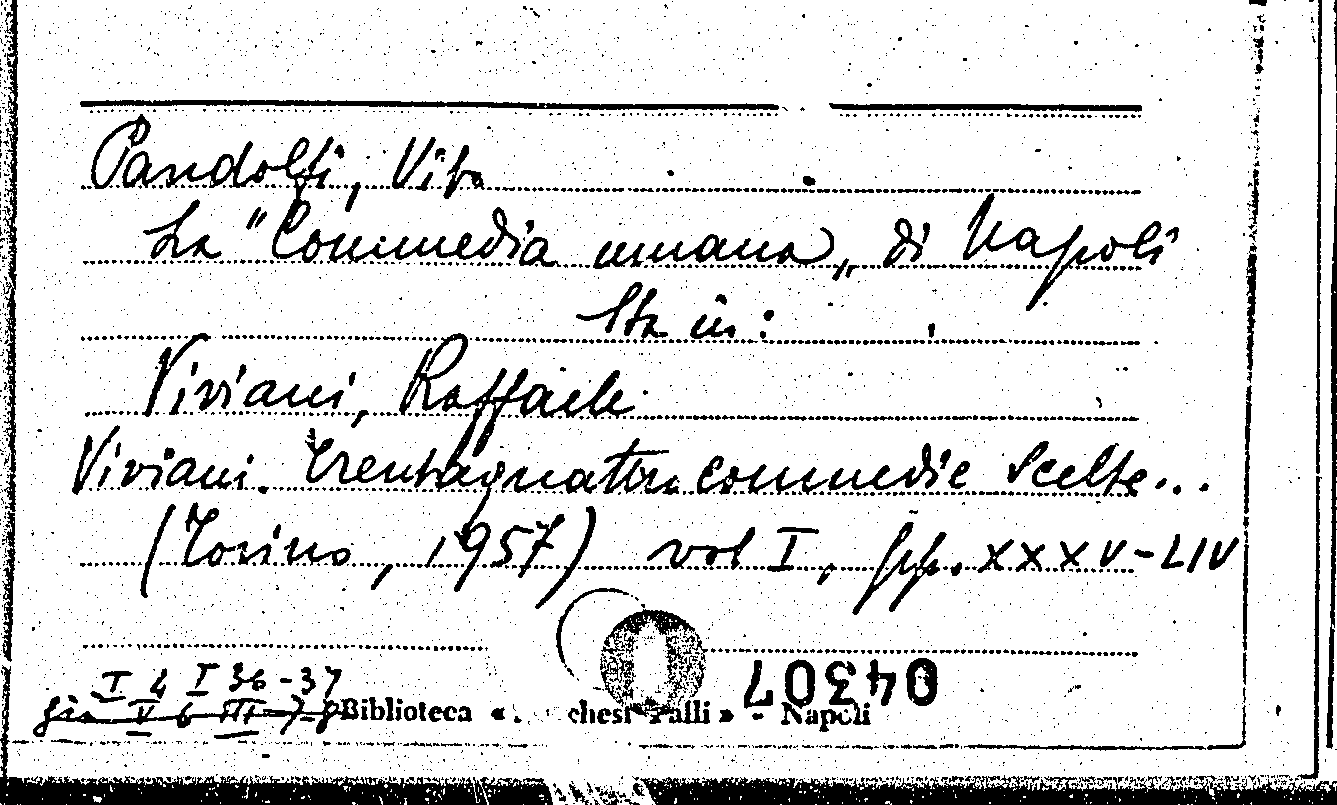 Pandolfi, Vito
La "Commedia umana„ di Napoli
Sta in:
Viviani, Raffaele
Viviani. Trentaquattro commedie scelte...
(Torino, 1957) vol I, pp. XXXV-LIV
I 4 I 36-37
già V 6 III 7-8
Biblioteca « . chesi Palli » - Napoli
04307